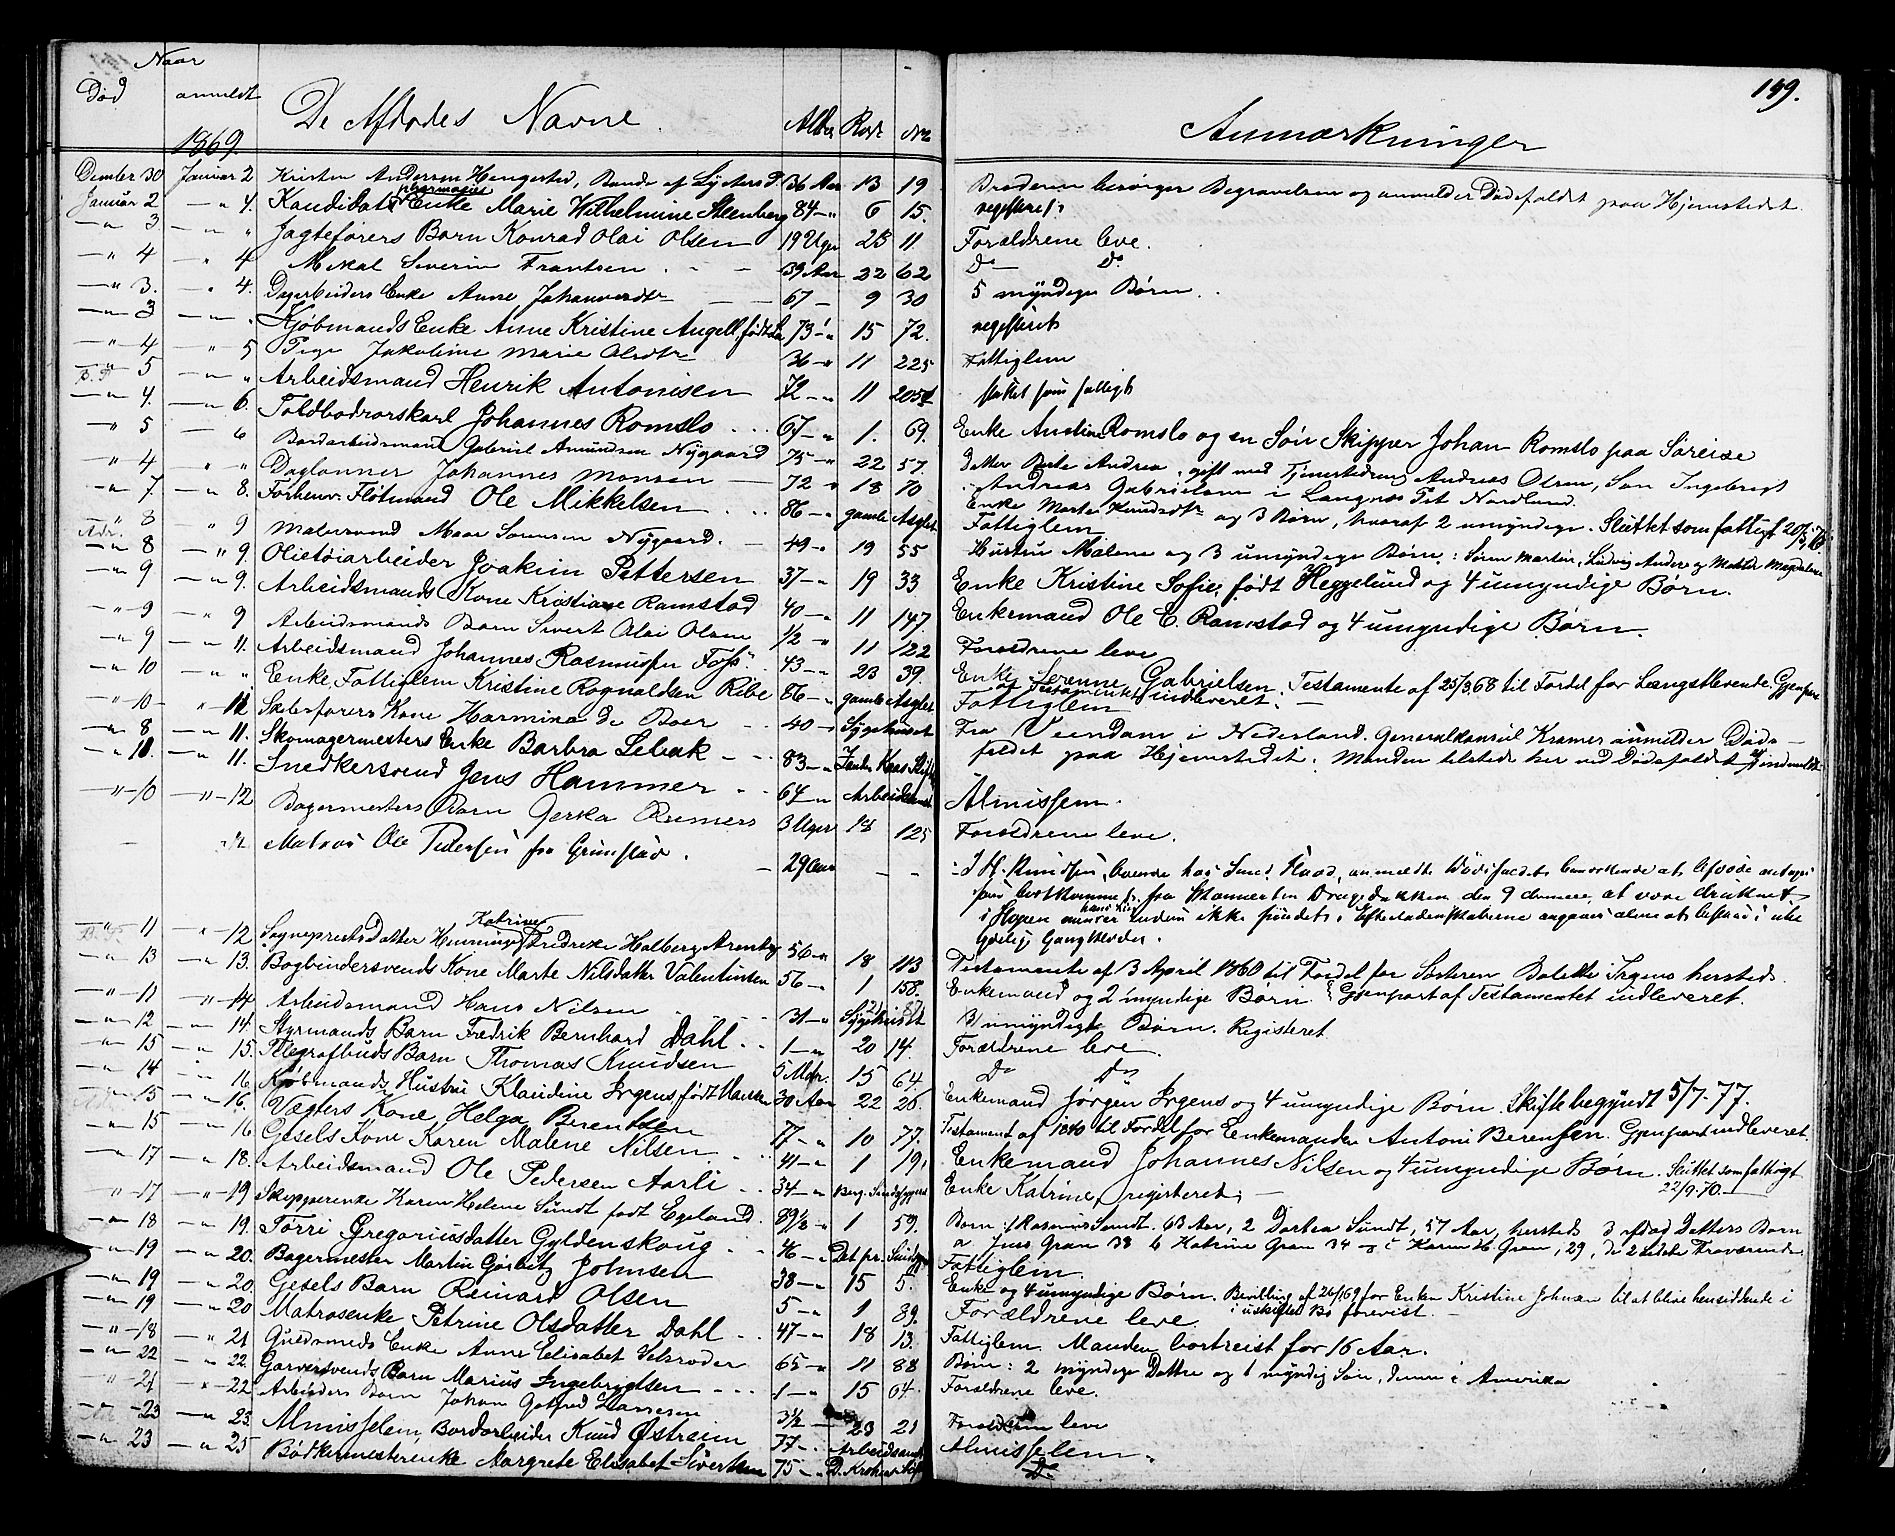 Naar
Død anmeldt De Afdødes Navne. Alder Rode No Anmærkninger 149.
1869.
Decmber 30 Januar 2 Kristen Hengested, Bonde af Lysters 36 Aar 13 19 Broderen besørger Begravelsen og anmelder Dødsfaldet paa Hjemstedet.
Januar 2 — " 4. Kandidat pharmaciæ Enke Marie Wilhelmine Steenberg 84 — " 6 15. registeret
— " 3 — " " Jagteførers Barn Konrad Olai Olsen 19 Uger 23 11. Forældrene leve.
— " 4 — " 4 Mikal Severin Frantsen 39 Aar 22 62 Do Do
— " 3. — " 4. Dagarbeiders Enke Anne Johannesdtr 67 — 9 30 5 myndige Børn.
— " 3 — " . Kjøbmands Enke Anne Kristine Angell født 73 — " 15 72. registeret
— " 4 — " 5 Pige Jakobine Marie Olsdtr 36 — " 11 225 Fattiglem
— " 5 — " " Arbeidsmand Henrik Antonisen 72 — " 11 205 sluttet som fattigt
— " 4. — " 6. Toldbodrorskarl Johannes Romslo 67 — " 1. 69. Enke Romslo og en Søn Skipper Johan Romslo paa Søreise
— " 5 — " 6 Bordarbeidsmand Gabriel Amundsen Nygaard 75 — " 22 57. Datter Berte Andrea, gift med Andreas Olsen, Søn Ingebrigt
— " 4 " " Daglønner Johannes Monsen 72 " 18 70 Andreas Gabrielsen i Nordland.
— " 7. — " 8. Forhenv. Fløtmand Ole Mikkelsen 86 — " gamle Enke Marte Knudsdtr og 3 Børn, hvoraf 2 umyndige. Sluttet som fattigt
— " 8 " 9 Malersvend Sørensen Nygaard. 49 — " 19 55 Fattiglem
— " 8 — " 9. Olietøiarbeider Joakim Pettersen 37 — " 19 33 Hustru Malene og 3 umyndige Børn: Søren Martin, Ludvig Andor og Matilde Magdalene
— " 9 — " 9. Arbeidsmands Kone Kristiane Ramstad 40 — " 11 147. Enke Kristine Sofie, født Heggelund og 4 umyndige Børn.
— " 9 " 9 Arbeidsmands Barn Sivert Olai Olsen 1/2 " 11 122 Enkemand Ole C. Ramstad og 4 umyndige Børn.
— " 9 — " 11. Arbeidsmand Johannes Rasmussen Foss 43 — " 23 39. Forældrene leve
— " 10 — " " Enke, Fattiglem Kristine Rognaldsen Ribe 86 — " gamle Enke Serenne Gabrielsen. Testamente af 25/3 68 til Fordel for Længstlevende. Gjenpart
af Testamentet indleveret.
— " 10 — " 11 Skibsførers Kone Harmina de Boer 40 — " Sygehuset Fattiglem
— " 8 — " 11. Skomagermesters Enke Barbra Lebak 83 — " Fra Veendam i Nederland. Generalkonsul Kramer anmelder Døds-
— " 10. — " 11. Snedkersvend Jens Hammer 64 — " faldet paa Hjemstedet. Manden tilstede her ved Dødsfaldet
— " 10 — " 12 Bagermesters Barn Gerka Reimers 3 Uger 18 125 Almisslem.
" 12 Matros Ole Pedersen fra Grimstad. 29 Aar — — Forældrene leve.
J. H. Knudsen, boende hos Smed Flood, anmeldte Dødsfaldet
fra den 9 dennes, at være druknet
i Hopen ikke fundets i
Gangklæder.
— " 11 — " 12 Sogneprests Datter Henninge Katrine Fredrikke Holberg Arentz 56 — " 18 113 Testamente af 3 April 1860 til Fordel for Søsteren Bolette Irgens hersteds.
— " 13 — " 13. Bogbindersvends Kone Marte Nilsdatter Valentinsen 56 — " 1 158. Enkemand og 2 myndige Børn. Gjenpart af Testamentet indleveret.
— " 11 " 14. Arbeidsmand Hans Nilsen 31 — " Sygehuset 3 umyndige Børn. Registeret
— " 12 — " 14. Styrmands Barn Fredrik Bernhard Dahl 1 — " 20 14. Forældrene leve.
— " 15 — " 15. Telegrafbuds Barn Thomas Knudsen 5 Mdr. 15 64. Do Do
— " 14 " 16 Kjøbmands Hustru Klaudine Irgens født Hansen 30 Aar 22 26. Enkemand Jørgen Irgens og 4 umyndige Børn. Skifte begyndt 5/7. 77.
— " 15 — " 16. Vægters Kone Helga Berentsen 77 — " 10 77. Testament af 1840 til Fordel for Enkemanden Antoni Berensen. Gjenpart indleveret.
— " 15 — " 16 Gesels Kone Karen Malene Nilsen 41 — " 1 19. Enkemand Johannes Nilsen og 4 umyndige Børn. Sluttet som fattigt
22/9. 70.
— " 17 — " 18. Arbeidsmand Ole Pedersen Aarli 34 — " Enke Katrine, registeret
— " 17 — " 19 Skippperenke Karen Helene Sundt født Egeland. 89 1/2 — " 1 59. Børn: 1 Rasmus Sundt. 63 Aar, 2 Dorthea Sundt, 57 Aar, hersteds 3 afdød Datters Børn
— " 18 — " 19. Torri Gregoriusdatter Gyldenskoug 46 — " a Jens Gran 38 b Katrine Gran 34 og c Karen H. Gran, 29, de 2 sidste fraværende.
— " 19 — " 20. Bagermester Martin Gørbitz Johnsen 38 — " 15 5. Fattiglem.
— " 19 — " 20. Gesels Barn Reinard Olsen 5 — " 1 89. Enke og 4 umyndige Børn. Bevilling af 26/1 69 for Enken Kristine Johnsen til at blive hensiddende i
i uskiftet Bo forevist.
— " 19 — " 20 Matrosenke Petrine Olsdatter Dahl 47 — " 18 13. Forældrene leve.
— " 18 " 21 Guldsmeds Enke Anne Elisabet Selsroder 65 — " 11 88 Fattiglem. Manden bortreist for 16 Aar.
— " 22 — " 22. Garversvends Barn Marius Ingebrigtsen 1 — " 15 64. Børn: 2 myndige Døttre og 1 myndig Søn, denne i Amerika
— " 21 — " 22 Arbeiders Barn Johan Gotfred Hansen 3 1/2 — 23 21 Forældrene leve.
— " 23 — " 23. Almisselem, Bordarbeider Knud Østreim 77 — Forældrene leve
— " 23 — " 25 Bødkermesterenke Margrete Elisabet Sivertsen 75 — " Almisselem.
Do